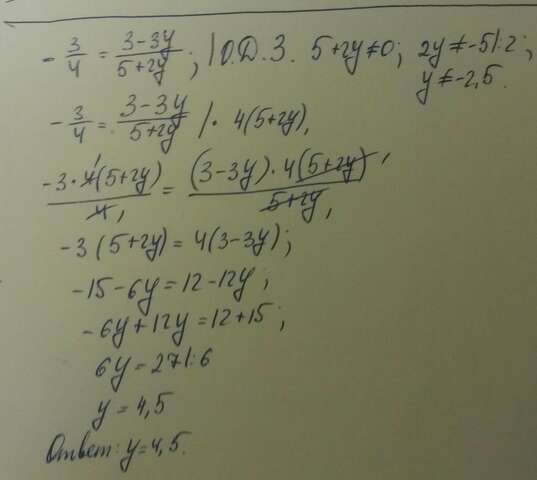 -3/4 = (3-3y)/(5+2y); | О.Д.З. 5+2y≠0; 2y≠-5|:2;
y≠-2,5.
-3/4 = (3-3y)/(5+2y) |· 4(5+2y),
(-3·4¹(5+2y))/4₁ = ((3-3y)·4(5+2y)¹)/(5+2y)₁
-3(5+2y)=4(3-3y);
-15-6y=12-12y;
-6y+12y=12+15;
6y=27|:6
y=4,5
Ответ: y=4,5.